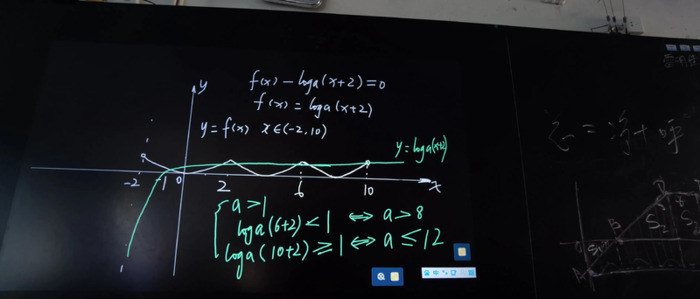 y
f(x) - loga(x+2) = 0
f(x) = loga(x+2)
y = f(x) x∈(-2,10)
y = loga(x+2)
-2 -1 0 2 6 10 x
a > 1
loga(6+2) < 1 ⇔ a > 8
loga(10+2) ≥ 1 ⇔ a ≤ 12